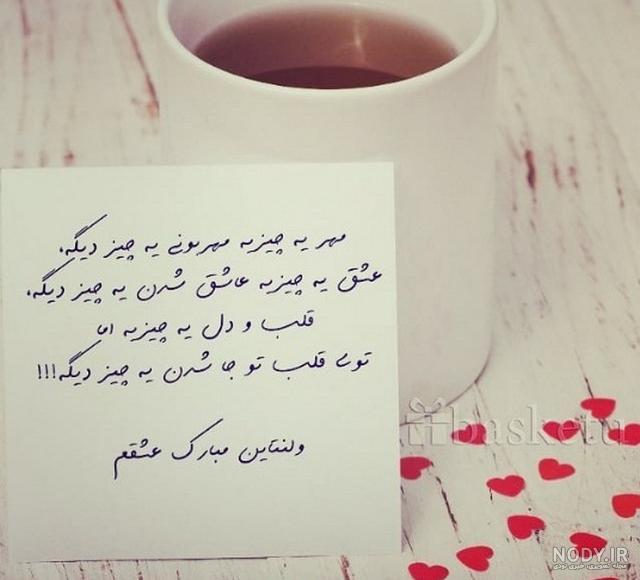 مهر یه چیزیه مهربونی یه چیز دیگه،
عشق یه چیزیه عاشق شدن یه چیز دیگه،
قلب و دل یه چیزیه اما
توی قلب تو جا شدن یه چیز دیگه!!!
ولنتاین مبارک عشقم
basketu
NODY.IR